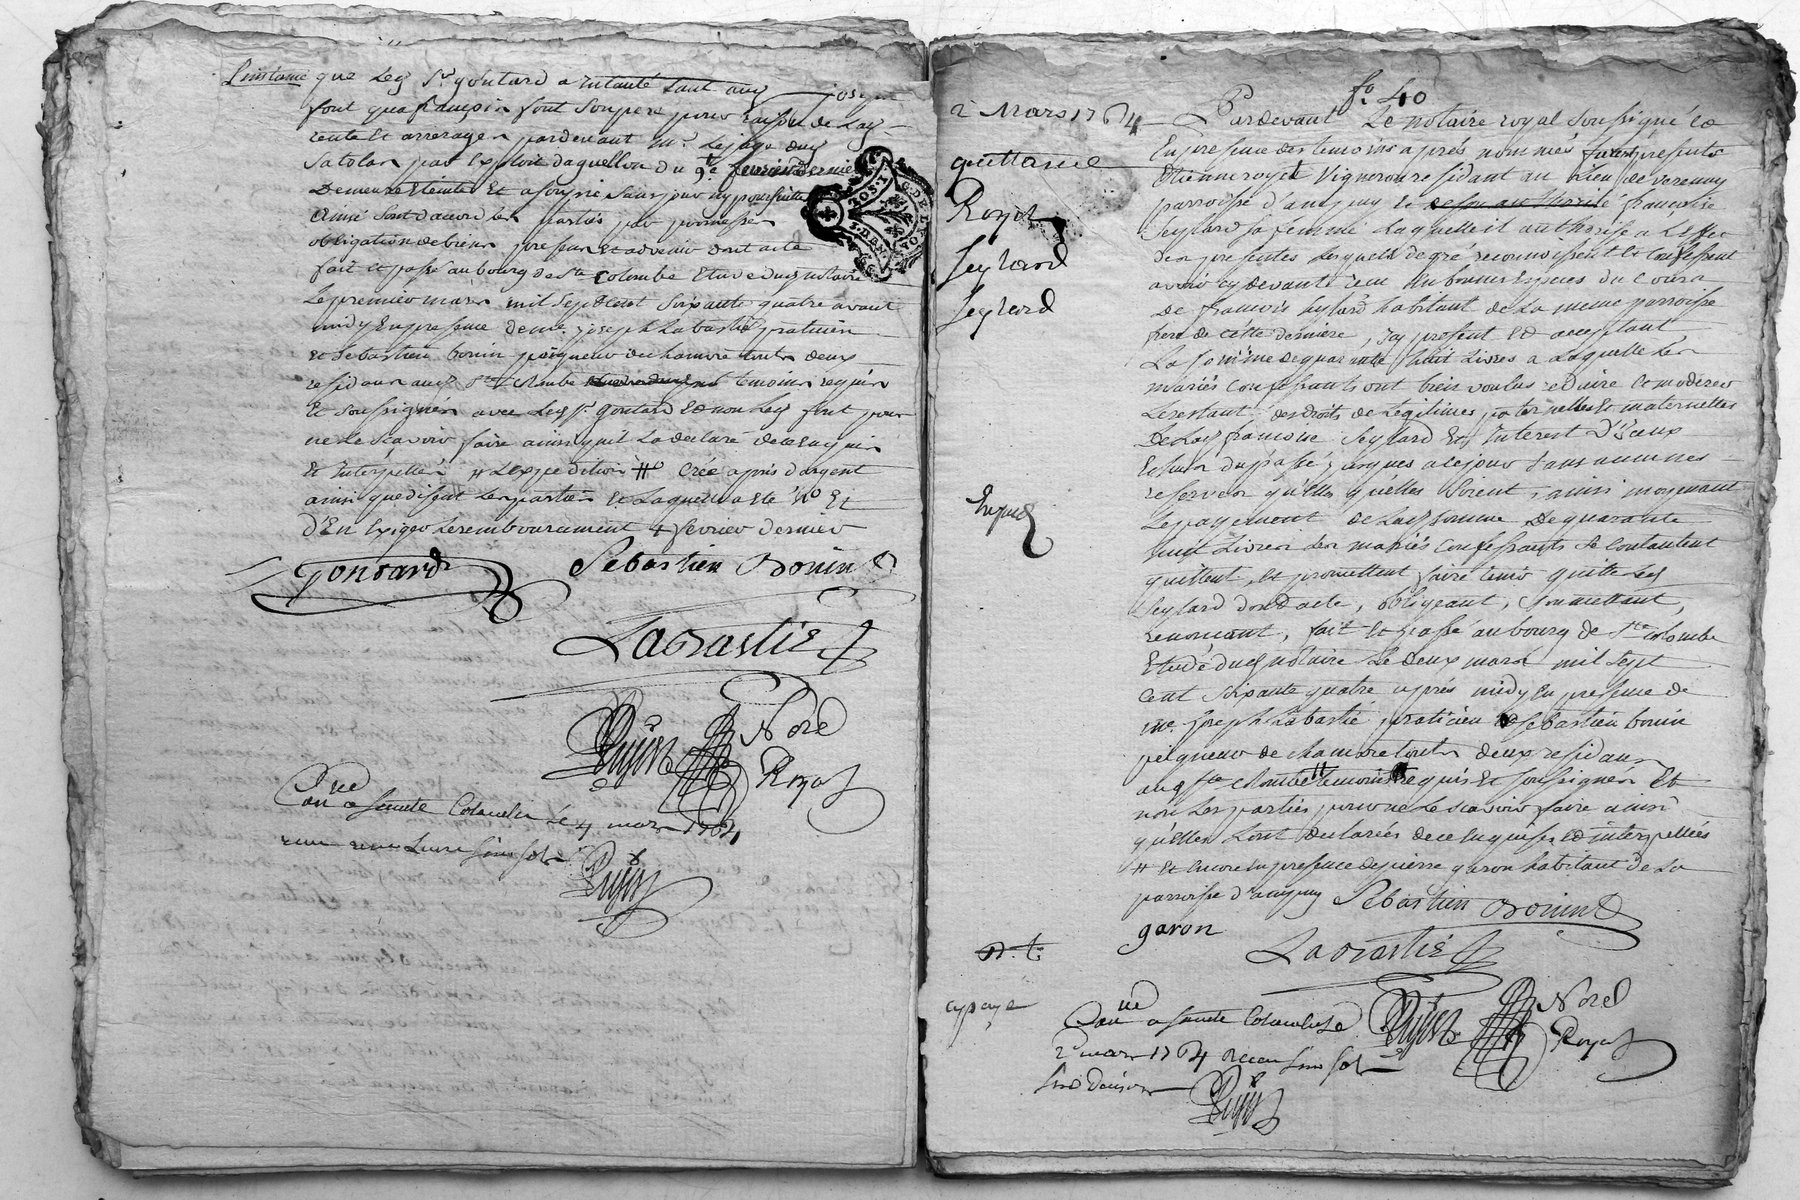 L'instance que led. Sr. goutard a intenté tant aud. joseph
font qua françois font son pere pour raison de lad.
rente et arrerages pardevant Mr. le juge de
Satolas par exploit daguillon du 9e. fevrier dernier
Demeure Eteinte Et assoupie sans pouvoir y poursuivre
Ainsi sont d'acord les parties par promesse
obligation de biens presens et advenir dont acte
fait et passé au bourg de Ste. Colombe Etude du notaire
Le premier mars mil Sept Cent Soixante quatre avant
midy En presence de me. joseph Labastié praticien
et Sebastien bonin peigneur de chamvre touts deux
residans aud. Ste. Colombe temoins requis
Et soussignés avec led. Sr. goutard et non led. font pour
ne le scavoir faire ainsy qu'il l'a declaré de ce enquis
Et interpellé # L'expedition # Crée a prix d'argent
ainsi que disent les parties Et laquelle a été
D'En Exiger le remboursement # fevrier dernier
Goutard Sebastien Bonin
Labastie
Noré
Royal
Con.né a Sainte Colombe Le 4 mars 1764
reçu une Livre six sols
2 Mars 1764
quittance
Royet
Seylard
Seylard
Exped.
fo. 40
Pardevant Le notaire royal Soussigné Et
En presence des temoins après nommés furent presents
Etienne royet Vigneron residant au lieu de verenay
parroisse d'ampuy et françoise
Seylard sa femme laquelle il authorise a L'effet
des presentes lesquels de gré reconnoissent et confessent
avoir cy devant recu En bonnes Especes du Cours
de françois Seylard habitant de la meme parroisse
frere de cette derniere, icy present et acceptant
La Somme de quarante huit Livres a laquelle les
mariés Confessants ont bien voulus reduire et moderer
Le restant des droits de legitimes paternelles Et maternelles
de lad. françoise Seylard Et interest d'iceux
Echus du passé jusques a ce jour sans aucunes
reserves qu'elles qu'elles soient, ainsi moyenant
Le payement de lad. somme de quarante
huit Livres les mariés confessants se contentent
quittent, et promettent faire tenir quitte led.
Seylard dont acte, obligeant, soumettant,
renoncant, fait et passé au bourg de Ste. colombe
Etude dud. notaire Le deux mars mil Sept
Cent Soixante quatre après midy En presence de
me. joseph labastié praticien Et Sebastien bonin
peigneur de chamvre touts deux residans
aud. Ste. Colombe # temoins requis Et soussignés Et
non les parties pour ne le scavoir faire ainsi
qu'elles l'ont declarées de ce Enquises et interpellées
# Et Encore En presence de pierre garon habitant de la
parroisse d'ampuy Sebastien Bonin
garon
Labastie
Noré
Royal
a paye
Con.né a Sainte Colombe Le
2e mars 1764 Recu Six Sols
Six deniers